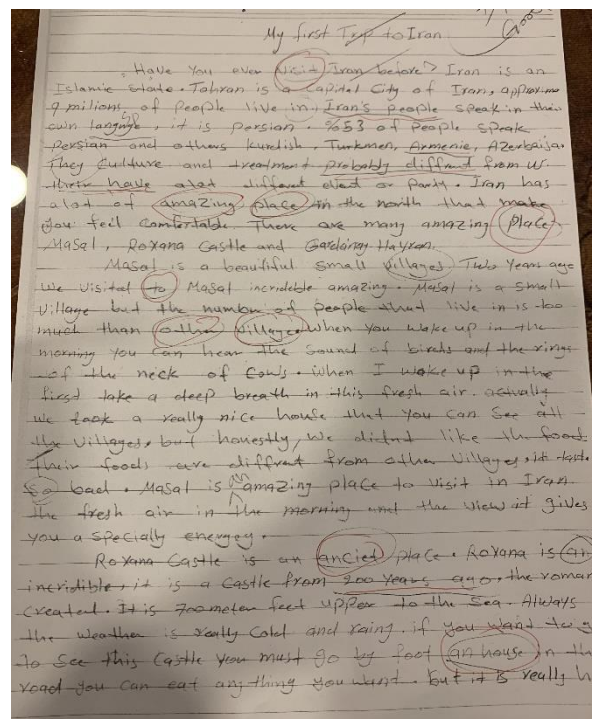 Good
My first Trip to Iran
Have You ever visit Iran before? Iran is an
Islamic state. Tahran is a capital City of Iran, approxima
9 milions of people live in. Iran's people speak in their
own languge, it is persian. %53 of people speak
persian and others kurdish, Turkmen, Armenie, Azerbaijan
They Culture and treatment probably diffrent from us.
their have alot different or Party. Iran has
alot of amazing place in the north that make
you feil comfortable. There are many amazing place
Masal, Roxana Castle and Hayran.
Masal is a beautiful small villages Two Years ago
we visited to Masal incredeble amazing. Masal is a small
village but the number of people that live in is too
much than other village. When you wake up in the
morning you can hear the sound of birds and the rings
of the neck of cows. When I woke up in the
first take a deep breath in this fresh air. actually
we took a really nice house that you can see all
the villages, but honestly, we didnt like the food
their foods are diffrent from other villages, it taste
so bad. Masal is an amazing place to visit in Iran.
the fresh air in the morning and the view it gives
you a specially energey.
Roxana Castle is an ancied place. Roxana is an
incridible, it is a castle from 200 years ago. the roman
created. It is 700 meter feet upper to the sea. Always
the weather is really cold and raing. if you want to g
to see this castle you must go by foot an house in th
road you can eat any thing you want. but it is really h